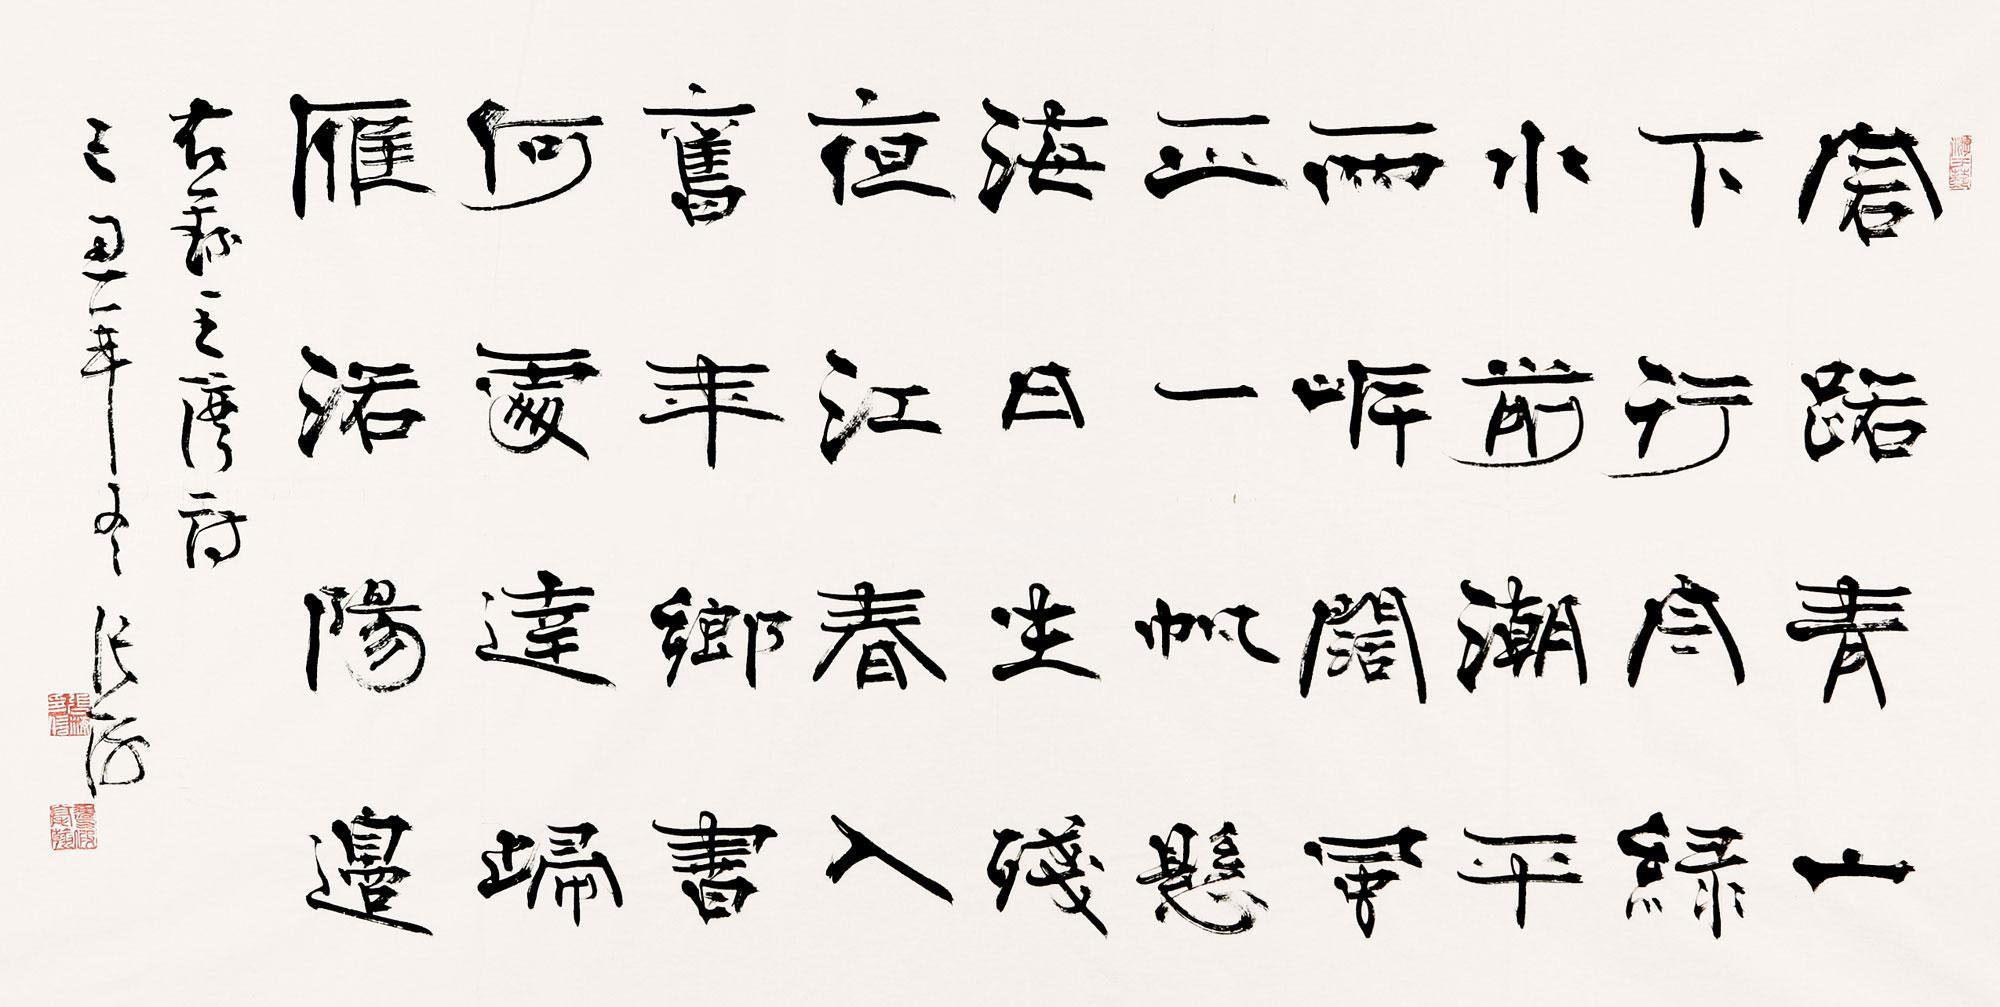 客路青山
下行舟綠
水前潮平
兩岸闊風
正一帆懸
海日生殘
夜江春入
舊年鄉書
何處達歸
雁洛陽邊
右錄王灣詩
己丑年冬張海